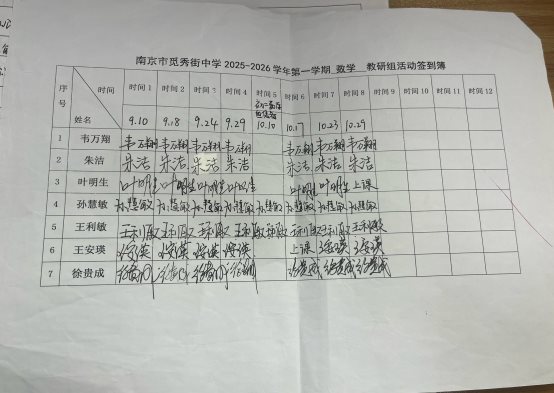 南京市觅秀街中学 2025-2026 学年第一学期 数学 教研组活动签到簿
序号 时间 姓名 时间 1 时间 2 时间 3 时间 4 时间 5 时间 6 时间 7 时间 8 时间 9 时间 10 时间 11 时间 12
9.10 9.18 9.24 9.29 10.10 10.17 10.23 10.29
1 韦万翔 韦万翔 韦万翔 韦万翔 韦万翔 韦万翔 韦万翔 韦万翔
2 朱洁 朱洁 朱洁 朱洁 朱洁 朱洁 朱洁 朱洁
3 叶明生 叶明生 叶明生 叶明生 叶明生 叶明生 叶明生 上课
4 孙慧敏 孙慧敏 孙慧敏 孙慧敏 孙慧敏 孙慧敏 孙慧敏 孙慧敏 孙慧敏
5 王利敏 王利敏 王利敏 王利敏 王利敏 王利敏 王利敏 王利敏 王利敏
6 王安瑛 上课
7 徐贵成 徐贵成 徐贵成 徐贵成